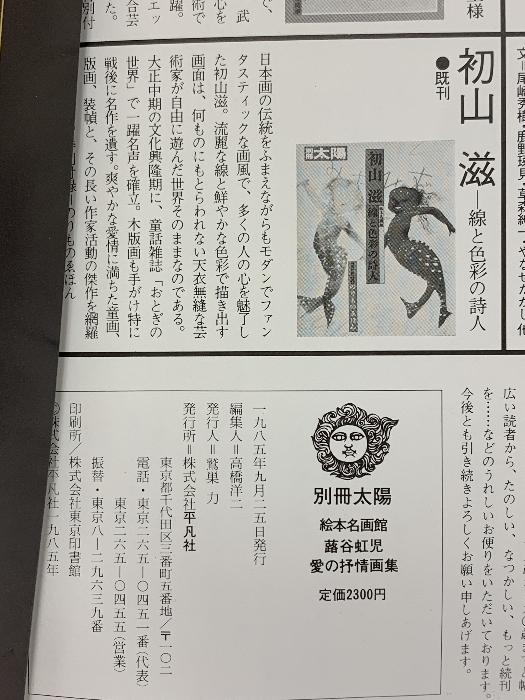 初山 滋―線と色彩の詩人
●既刊
別冊太陽
初山 滋
線と色彩の詩人
日本画の伝統をふまえながらもモダンでファン
タスティックな画風で、多くの人の心を魅了し
た初山滋。流麗な線と鮮やかな色彩で描き出す
画面は、何ものにもとらわれない天衣無縫な芸
術家が自由に遊んだ世界そのままなのである。
大正中期の文化興隆期に、童話雑誌「おとぎの
世界」で一躍名声を確立。木版画も手がけ特に
戦後に名作を遺す。爽やかな愛情に満ちた童画、
版画、装幀と、その長い作家活動の傑作を網羅
広い読者から、たのしい、なつかしい、もっと続刊
を……などのうれしいお便りをいただいております。
今後とも引き続きよろしくお願い申しあげます。
別冊太陽
絵本名画館
蕗谷虹児
愛の抒情画集
定価2300円
一九八五年九月二五日発行
編集人＝高橋洋二
発行人＝鷲巣 力
発行所＝株式会社平凡社
東京都千代田区三番町五番地／〒一〇二
電話・東京二六五―〇四五一番(代表)
東京二六五―〇四五五(営業)
振替・東京八―二九六三九番
印刷所・株式会社東京印書館
©株式会社平凡社一九八五年